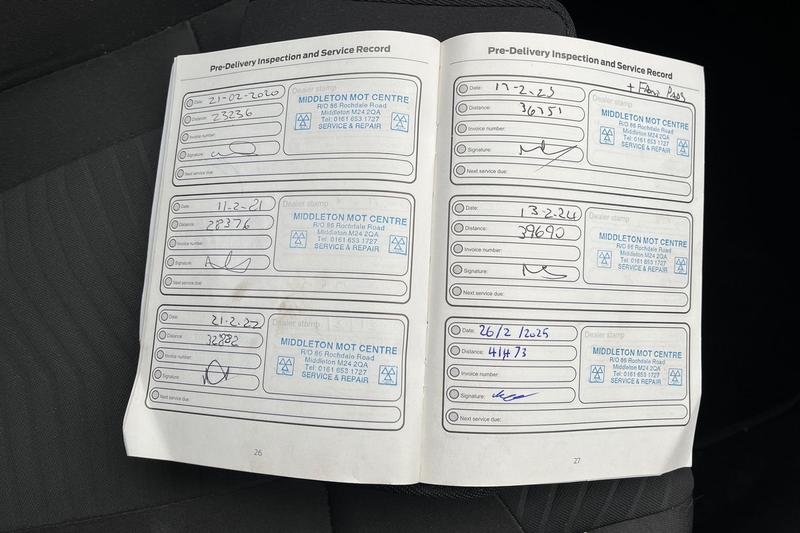 Pre-Delivery Inspection and Service Record
Date: 21-02-2020
Distance: 23236
Invoice number:
Signature:
Next service due:
Dealer stamp
MIDDLETON MOT CENTRE
R/O 86 Rochdale Road
Middleton M24 2QA
Tel: 0161 653 1727
SERVICE & REPAIR
Date: 11-2-21
Distance: 28376
Invoice number:
Signature:
Next service due:
Dealer stamp
MIDDLETON MOT CENTRE
R/O 86 Rochdale Road
Middleton M24 2QA
Tel: 0161 653 1727
SERVICE & REPAIR
Date: 21-2-22
Distance: 32882
Invoice number:
Signature:
Next service due:
Dealer stamp
MIDDLETON MOT CENTRE
R/O 86 Rochdale Road
Middleton M24 2QA
Tel: 0161 653 1727
SERVICE & REPAIR
26
Pre-Delivery Inspection and Service Record
+ Front Pads
Date: 17-2-23
Distance: 36751
Invoice number:
Signature:
Next service due:
MIDDLETON MOT CENTRE
R/O 86 Rochdale Road
Middleton M24 2QA
Tel: 0161 653 1727
SERVICE & REPAIR
Date: 13-2-24
Distance: 39690
Invoice number:
Signature:
Next service due:
Dealer stamp
MIDDLETON MOT CENTRE
R/O 86 Rochdale Road
Middleton M24 2QA
Tel: 0161 653 1727
SERVICE & REPAIR
Date: 26/2/2025
Distance: 41473
Invoice number:
Signature:
Next service due:
Dealer stamp
MIDDLETON MOT CENTRE
R/O 86 Rochdale Road
Middleton M24 2QA
Tel: 0161 653 1727
SERVICE & REPAIR
27